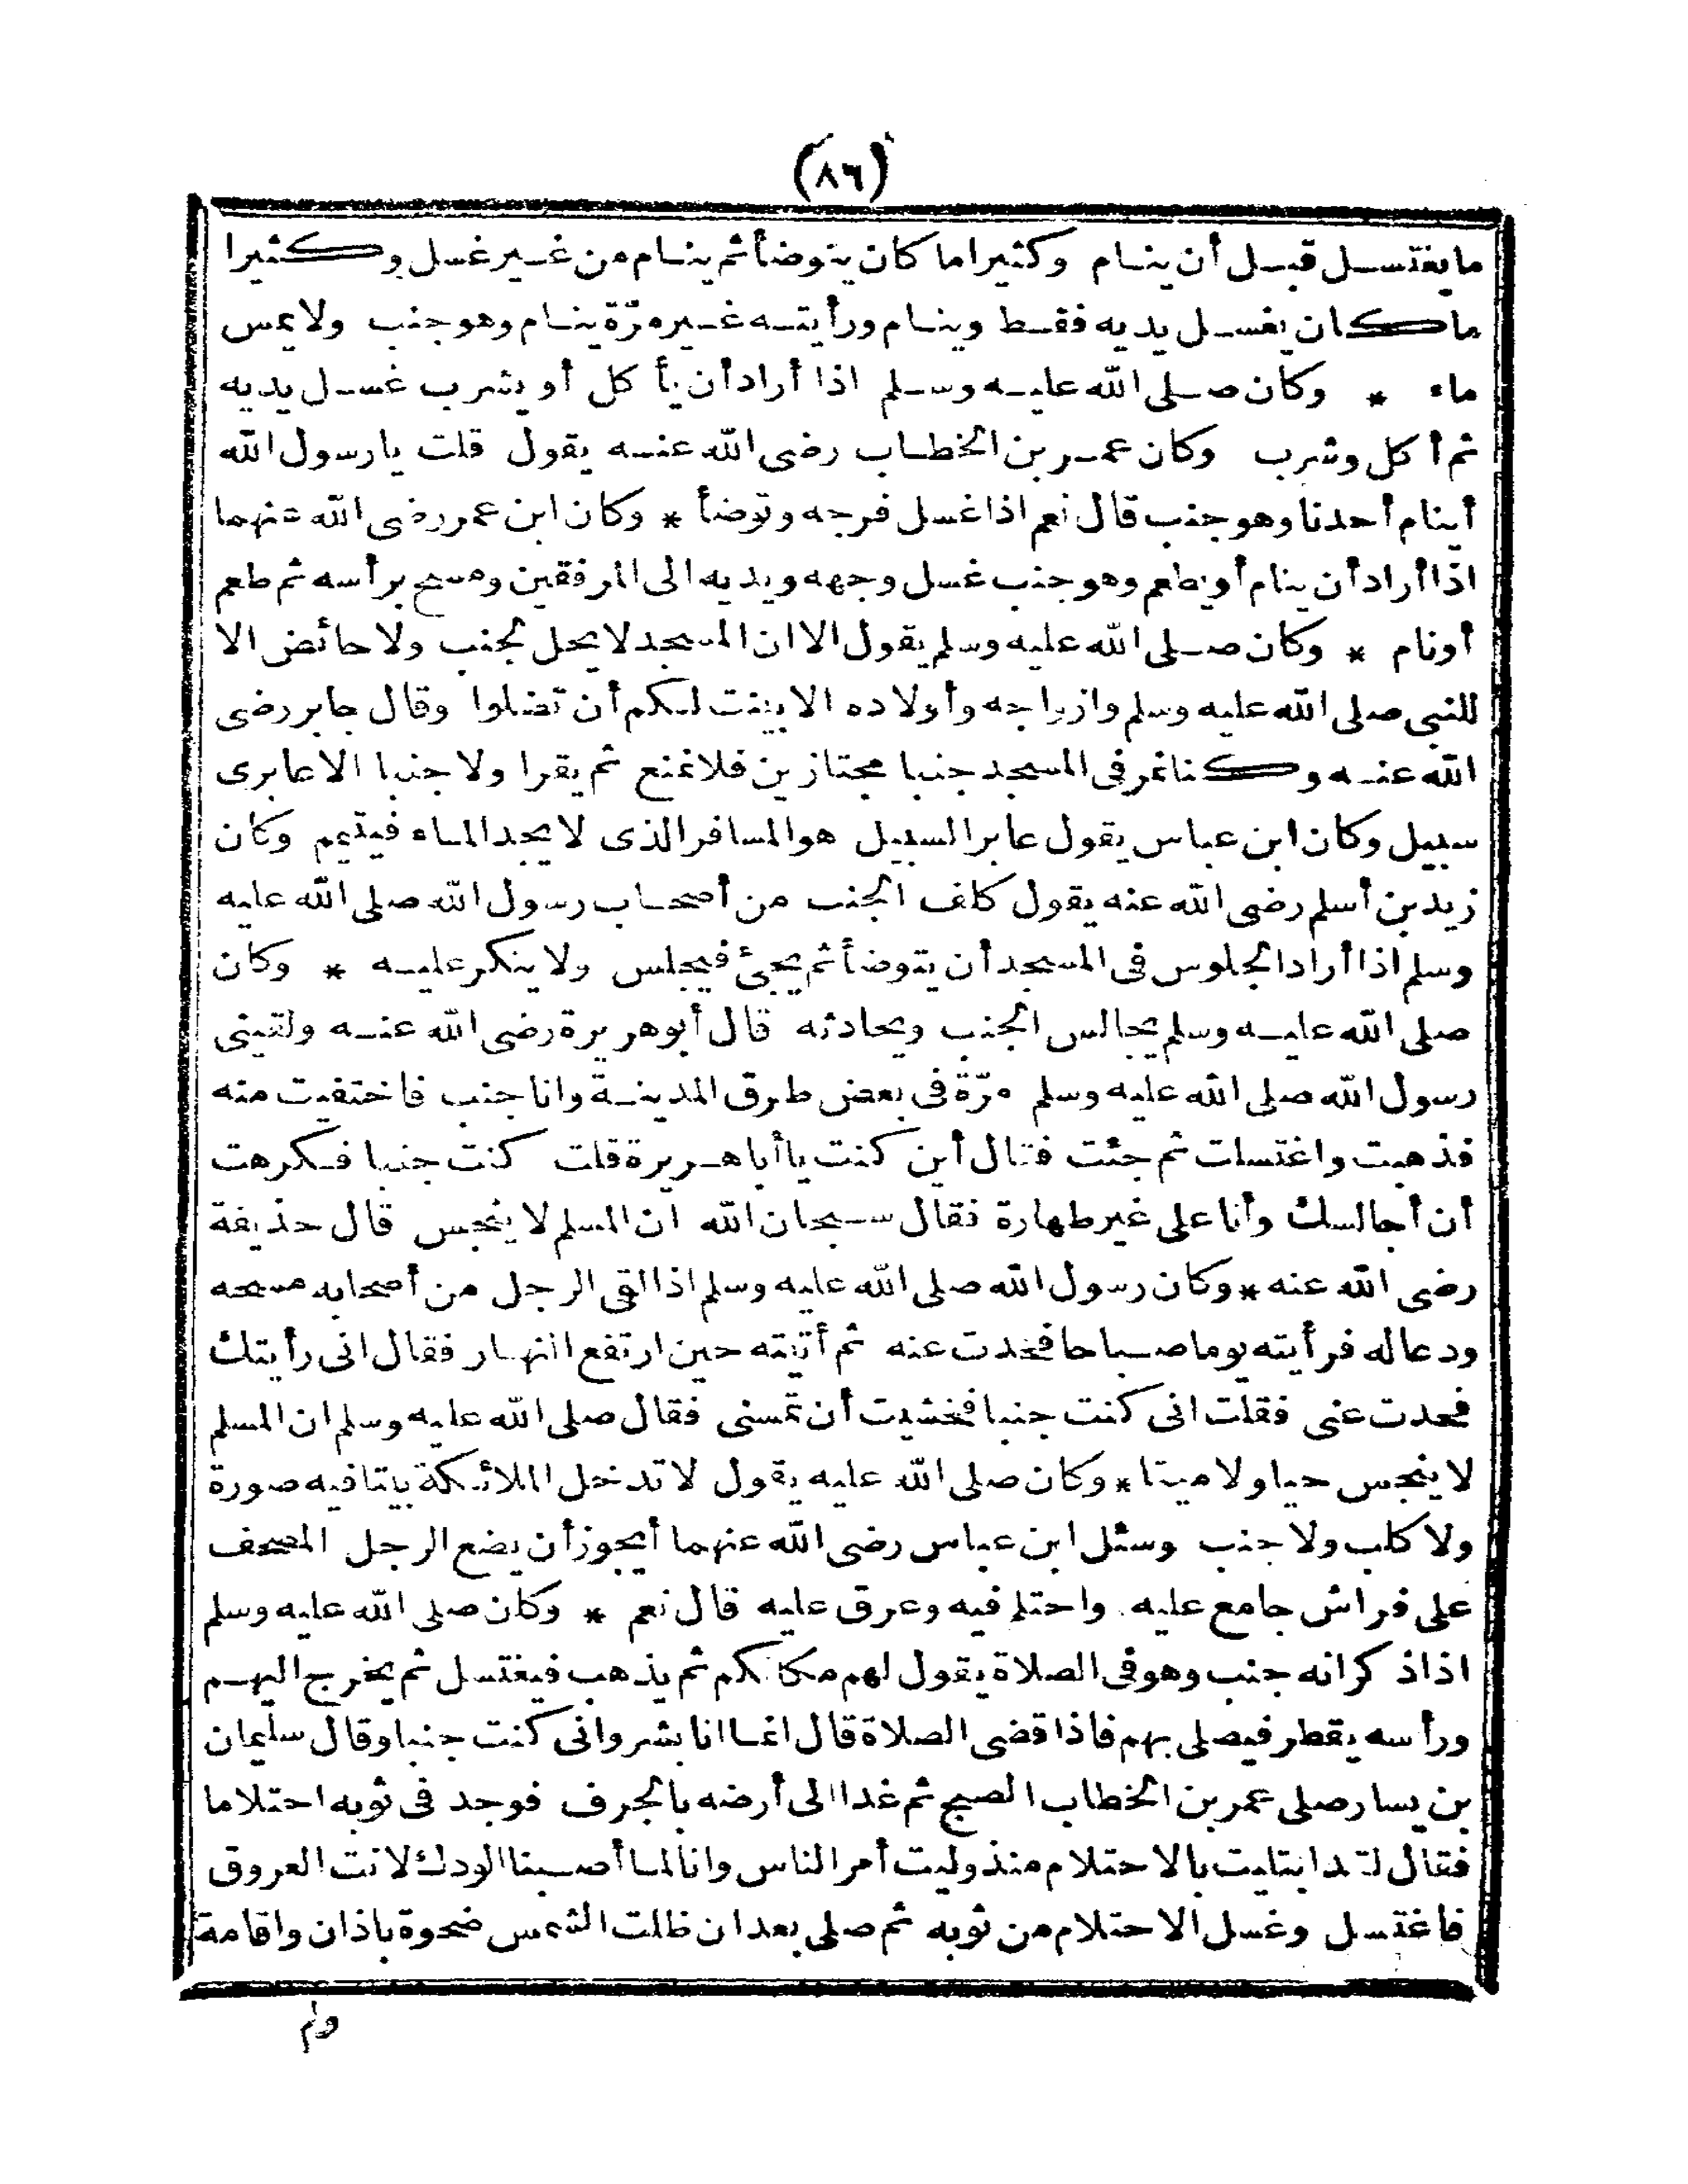 (٨٦)
ما يغتسل قبل أن ينام وكثيرا ما كان يتوضأ ثم ينام من غير غسل وكثيرا
ما كان يغسل يديه فقط وينام ورأيته غير مرّة ينام وهو جنب ولا يمس
ماء * وكان صلى الله عليه وسلم اذا أراد أن يأكل أو يشرب غسل يديه
ثم أكل وشرب وكان عمر بن الخطاب رضى الله عنه يقول قلت يا رسول الله
أينام أحدنا وهو جنب قال نعم اذا غسل فرجه وتوضأ * وكان ابن عمر رضى الله عنهما
اذا أراد أن ينام أو يطعم وهو جنب غسل وجهه ويديه الى المرفقين ومسح برأسه ثم طعم
أو نام * وكان صلى الله عليه وسلم يقول الا ان المسجد لا يحل لجنب ولا حائض الا
للنبى صلى الله عليه وسلم وازواجه وأولاده الا بينت لكم أن تضلوا وقال جابر رضى
الله عنه وكنا نمر فى المسجد جنبا مجتازين فلا نمنع ثم يقرا ولا جنبا الا عابرى
سبيل وكان ابن عباس يقول عابر السبيل هو المسافر الذى لا يجد الماء فيتيمم وكان
زيد بن أسلم رضى الله عنه يقول كان الجنب من أصحاب رسول الله صلى الله عليه
وسلم اذا أراد الجلوس فى المسجد أن يتوضأ ثم يجئ فيجلس ولا ينكر عليه * وكان
صلى الله عليه وسلم يجالس الجنب ويحادثه قال أبو هريرة رضى الله عنه ولقينى
رسول الله صلى الله عليه وسلم مرّة فى بعض طرق المدينة وانا جنب فاختفيت منه
فذهبت واغتسلت ثم جئت فقال أين كنت يا أبا هريرة قلت كنت جنبا فكرهت
أن أجالسك وأنا على غير طهارة فقال سبحان الله ان المسلم لا ينجس قال حذيفة
رضى الله عنه * وكان رسول الله صلى الله عليه وسلم اذا لقى الرجل من أصحابه مسحه
ودعا له فرأيته يوما صباحا فحدت عنه ثم أتيته حين ارتفع النهار فقال انى رأيتك
فحدت عنى فقلت انى كنت جنبا فخشيت أن تمسنى فقال صلى الله عليه وسلم ان المسلم
لا ينجس حيا ولا ميتا * وكان صلى الله عليه يقول لا تدخل الملائكة بيتا فيه صورة
ولا كلب ولا جنب وسئل ابن عباس رضى الله عنهما أيجوز أن يضع الرجل المصحف
على فراش جامع عليه واحتلم فيه وعرق عليه قال نعم * وكان صلى الله عليه وسلم
اذا ذكر انه جنب وهو فى الصلاة يقول لهم مكانكم ثم يذهب فيغتسل ثم يخرج اليهم
ورأسه يقطر فيصلى بهم فاذا قضى الصلاة قال انما انا بشر وانى كنت جنبا وقال سليمان
بن يسار صلى عمر بن الخطاب الصبح ثم غدا الى أرضه بالجرف فوجد فى ثوبه احتلاما
فقال لقد ابتليت بالاحتلام منذ وليت أمر الناس وانا لما أصبنا الودك لانت العروق
فاغتسل وغسل الاحتلام من ثوبه ثم صلى بعد ان طلت الشمس ضحوة باذان واقامة
ولم